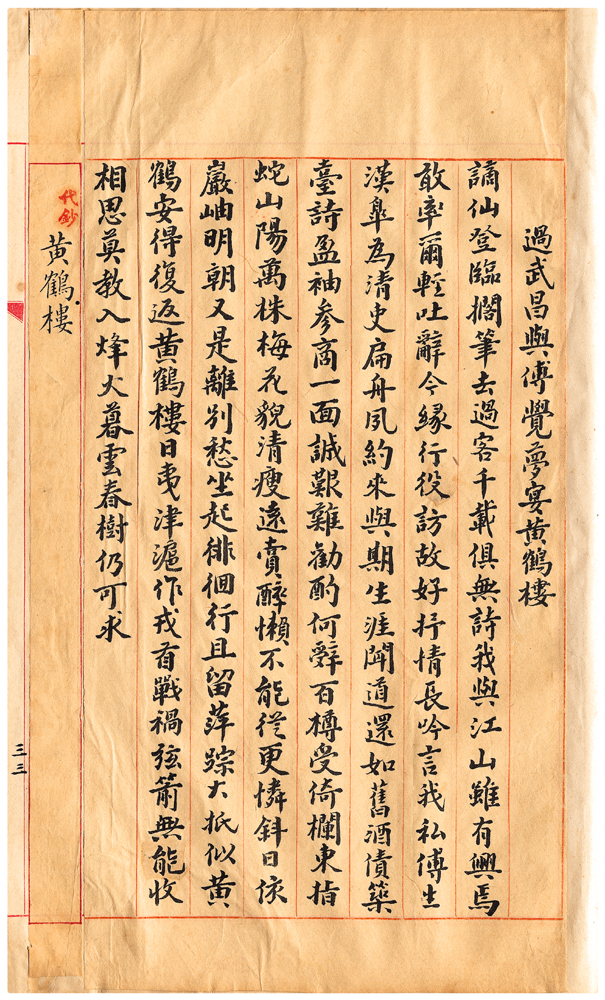 過武昌與傅覺夢宴黄鶴樓
謫仙登臨擱筆去過客千載俱無詩我與江山雖有興焉
敢率爾輕吐辭今緣行役訪故好抒情長吟言我私傅生
漢皐為清吏扁舟夙約來與期生涯聞道還如舊酒債築
臺詩盈袖參商一面誠艱難勸酌何辭百樽受倚欄東指
蛇山陽萬株梅花貌清瘦遠賞醉懶不能從更憐斜日依
巖岫明朝又是離別愁坐起徘徊行且留萍踪大抵似黄
鶴安得復返黄鶴樓日夷津滬作戎首戰禍弦箭無能收
相思莫教入烽火暮雲春樹仍可求
代鈔
黄鶴樓
三三